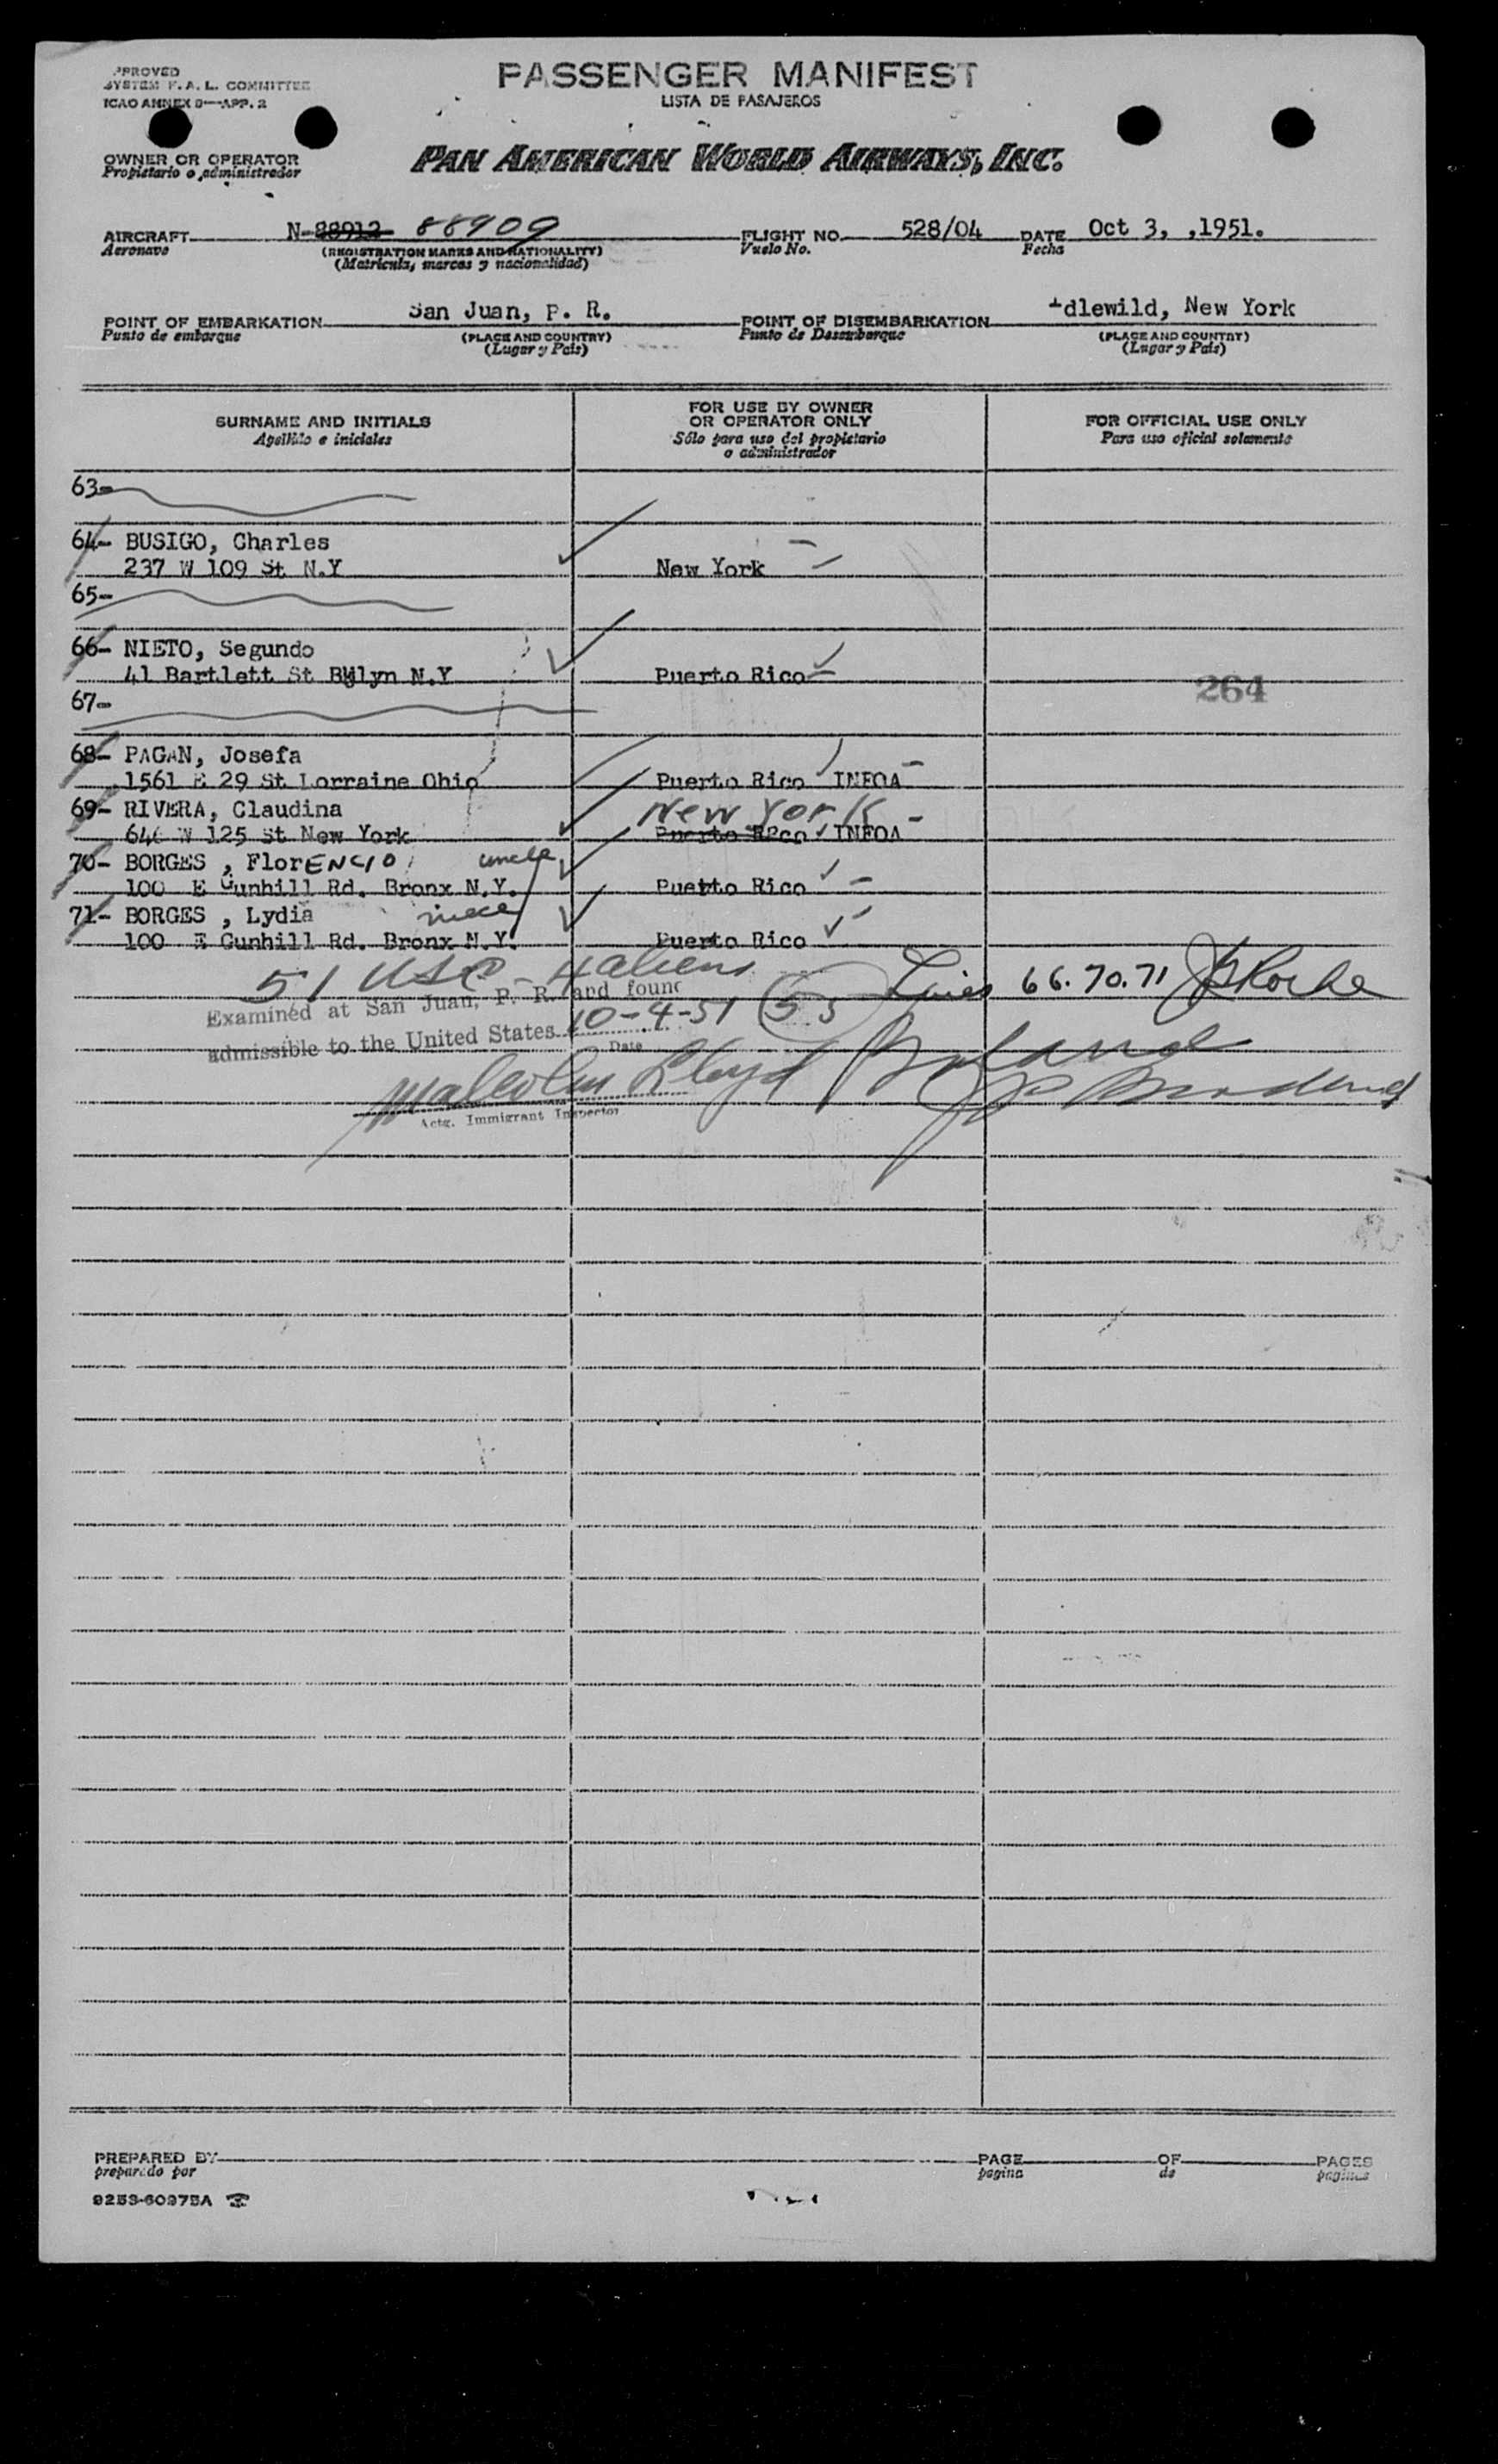 PASSENGER MANIFEST
LISTA DE PASAJEROS
PPROVED
SYSTEM F. A. L. COMMITTEE
ICAO ANNEX 9—APP. 2
OWNER OR OPERATOR
Propietario o administrador
PAN AMERICAN WORLD AIRWAYS, INC.
AIRCRAFT N-88912 88909 FLIGHT NO. 528/04 DATE Oct 3, ,1951.
Aeronave (REGISTRATION MARKS AND NATIONALITY) Vuelo No. Fecha
(Matricula, marcas y nacionalidad)
POINT OF EMBARKATION San Juan, P. R. POINT OF DISEMBARKATION Idlewild, New York
Punto de embarque (PLACE AND COUNTRY) Punto de Desembarque (PLACE AND COUNTRY)
(Lugar y Pais) (Lugar y Pais)
SURNAME AND INITIALS
Apellido e iniciales
FOR USE BY OWNER
OR OPERATOR ONLY
Sólo para uso del propietario
o administrador
FOR OFFICIAL USE ONLY
Para uso oficial solamente
63-
64- BUSIGO, Charles
237 W 109 St N.Y New York
65-
66- NIETO, Segundo
41 Bartlett St Bklyn N.Y Puerto Rico
264
67-
68- PAGAN, Josefa
1561 E 29 St Lorraine Ohio Puerto Rico INFOA
69- RIVERA, Claudina New York
W 125 St New York Puerto Rico INFOA
70- BORGES , FlorENCIO uncle
100 E Gunhill Rd. Bronx N.Y. Puerto Rico
71- BORGES , Lydia niece
100 E Gunhill Rd. Bronx N.Y. Puerto Rico
51 USC - 4 aliens 66.70.71
Examined at San Juan, P. R. and found
admissible to the United States 10-4-51 (55)
Date
Malcolm Lloyd
Actg. Immigrant Inspector
PREPARED BY PAGE OF PAGES
preparado por pagina de paginas
9253-60975A